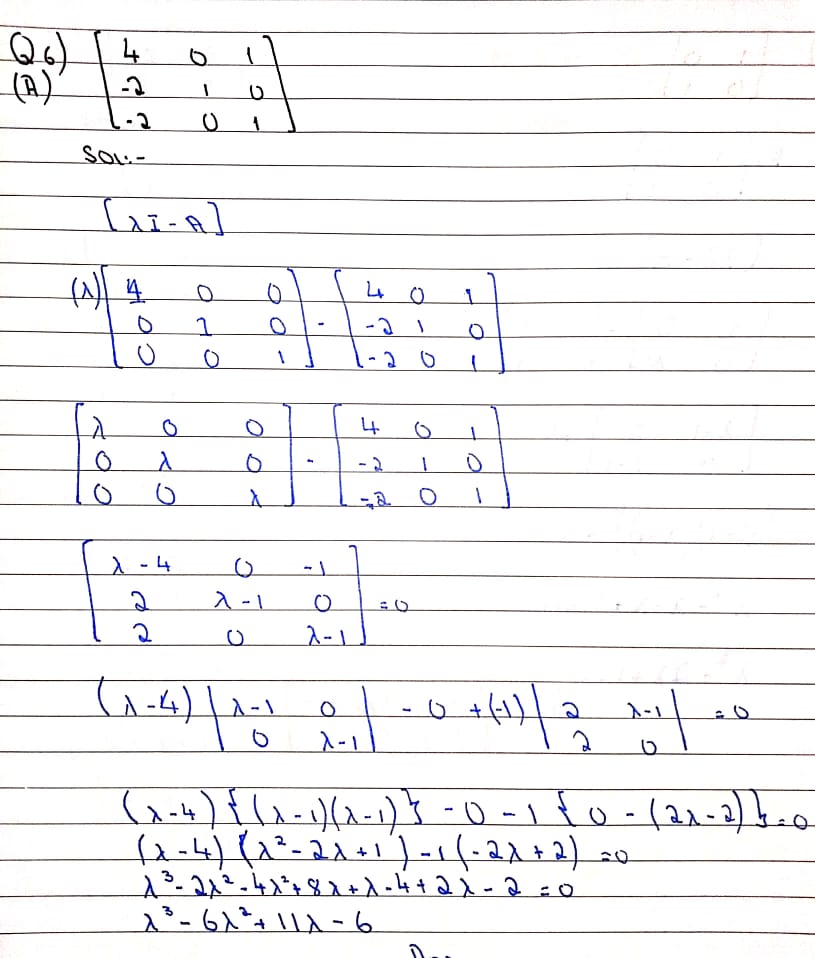 Q6) [ 4 0 1
(A) -2 1 0
-2 0 1 ]
Sol:-
[λI-A]
(λ) [ 4 0 0 ] - [ 4 0 1 ]
[ 0 1 0 ] - [ -2 1 0 ]
[ 0 0 1 ] [ -2 0 1 ]
[ λ 0 0 ] - [ 4 0 1 ]
[ 0 λ 0 ] - [ -2 1 0 ]
[ 0 0 λ ] [ -2 0 1 ]
[ λ-4 0 -1 ]
[ 2 λ-1 0 ] =0
[ 2 0 λ-1 ]
(λ-4) | λ-1 0 | - 0 +(-1) | 2 λ-1 | =0
| 0 λ-1 | | 2 0 |
(λ-4) {(λ-1)(λ-1)} - 0 - 1 {0 - (2λ-2)} =0
(λ-4) (λ²-2λ+1) -1(-2λ+2) =0
λ³-2λ²-4λ²+8λ+λ-4+2λ-2=0
λ³-6λ²+11λ-6